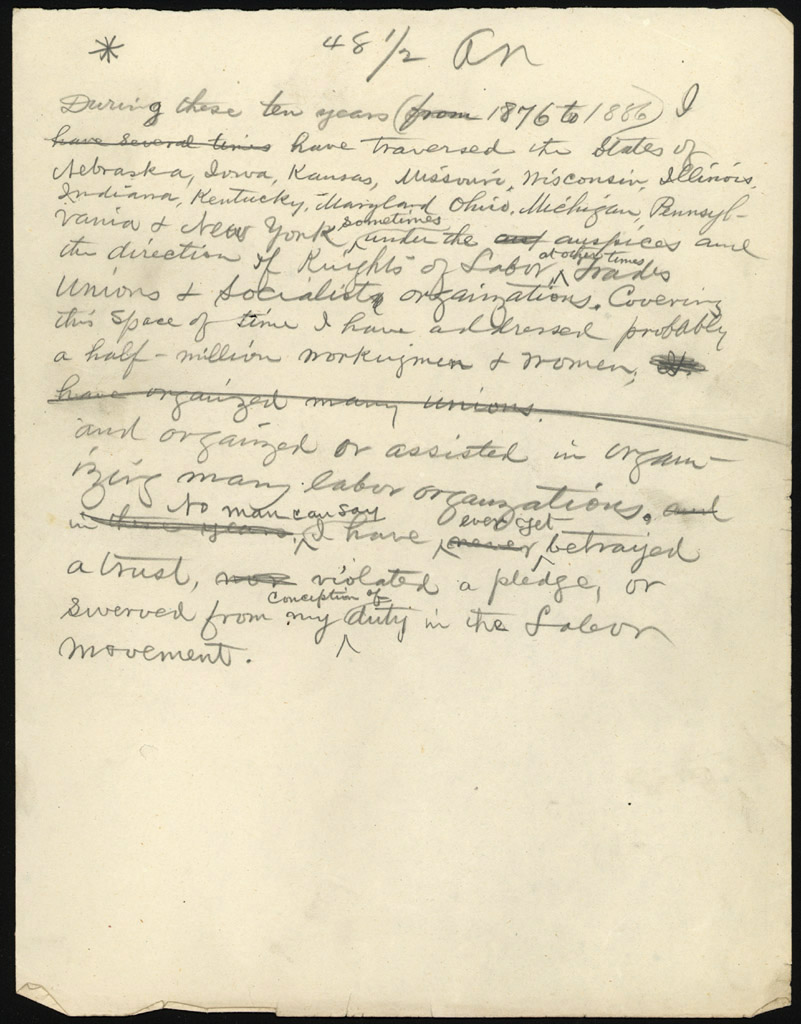 * 48 1/2 An
During these ten years (from 1876 to 1886) I
have several times have traversed the States of
Nebraska, Iowa, Kansas, Missouri, Wisconsin, Illinois,
Indiana, Kentucky, Maryland Ohio, Michigan, Pennsyl-
vania & New York, sometimes under the auspices and
the direction of Knights of Labor, at other times Trades
Unions & Socialists orgainzations. Covering
this space of time I have addressed probably
a half-million workingmen & women,
have organized many unions.
and organized or assisted in organ-
izing many labor organizations. and
in these years, No man can say I have never ever yet betrayed
a trust, nor violated a pledge, or
swerved from my conception of duty in the Labor
movement.